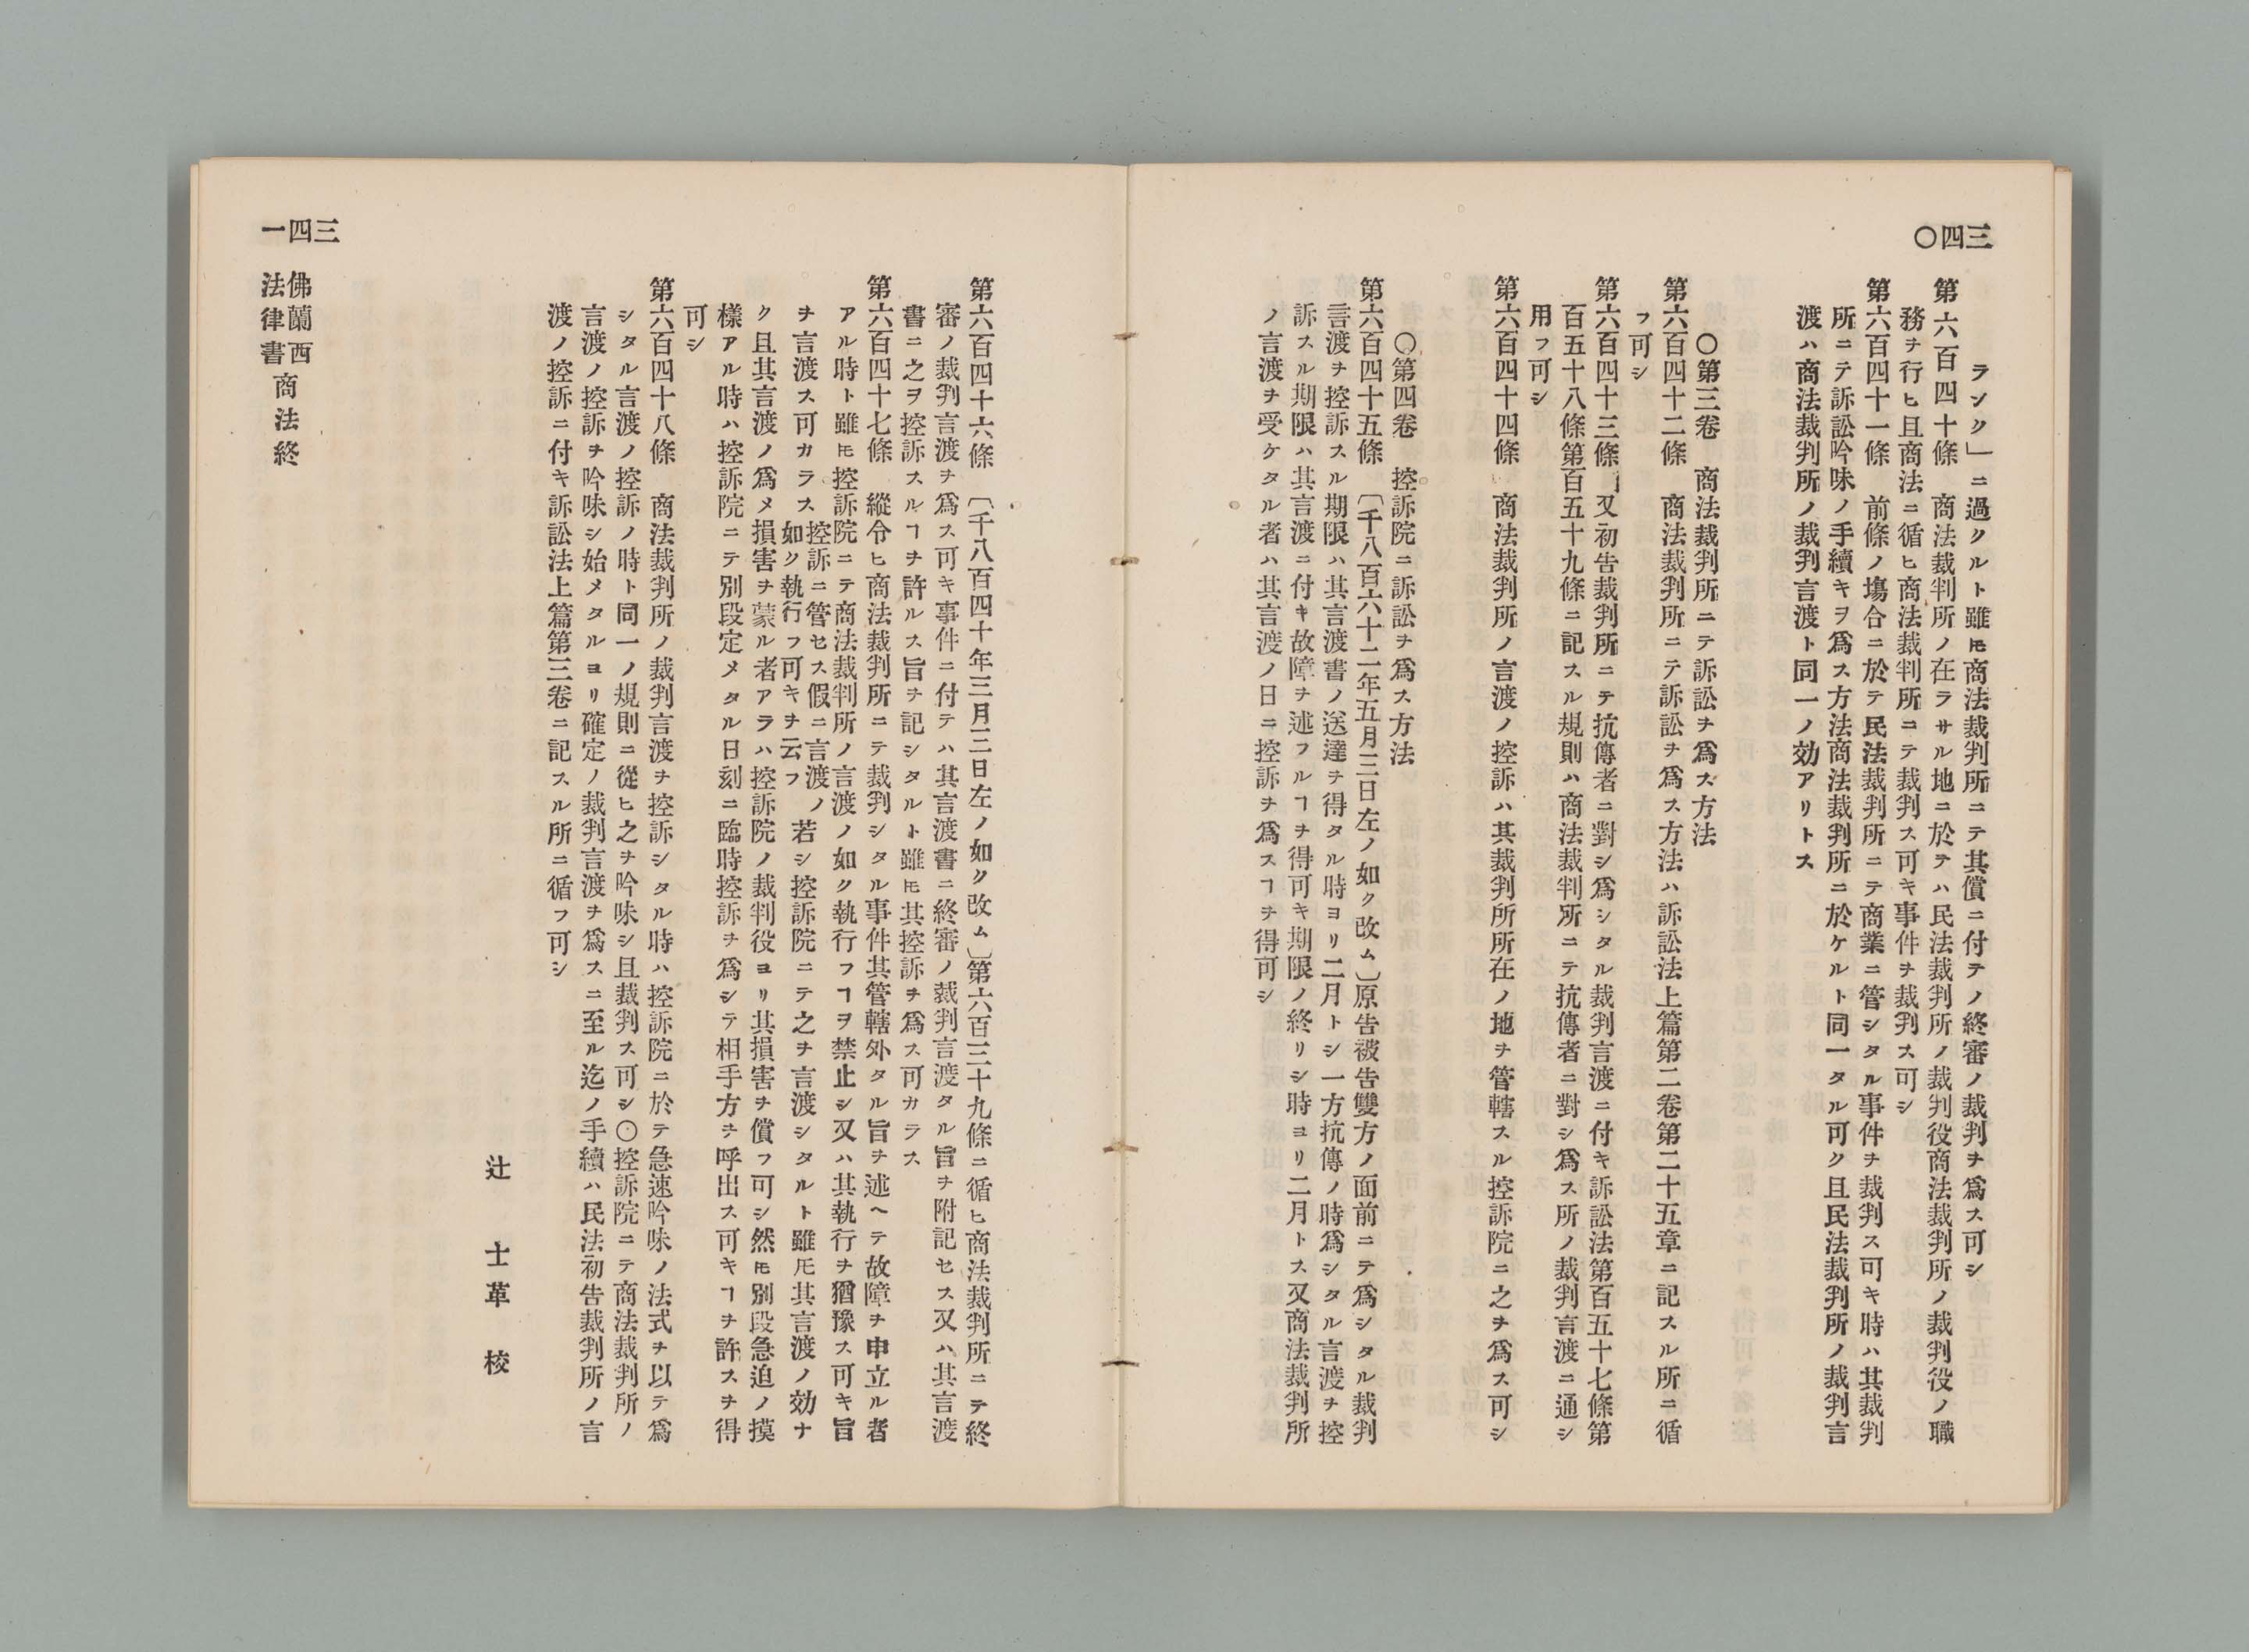 三四〇
ランク」ニ過クルト雖𪜈商法裁判所ニテ其償ニ付テノ終審ノ裁判ヲ爲ス可シ
第六百四十條　商法裁判所ノ在ラサル地ニ於テハ民法裁判所ノ裁判役商法裁判所ノ裁判役ノ職
務ヲ行ヒ且商法ニ循ヒ商法裁判所ニテ裁判ス可キ事件ヲ裁判ス可シ
第六百四十一條　前條ノ塲合ニ於テ民法裁判所ニテ商業ニ管シタル事件ヲ裁判ス可キ時ハ其裁判
所ニテ訴訟吟味ノ手續キヲ爲ス方法商法裁判所ニ於ケルト同一タル可ク且民法裁判所ノ裁判言
渡ハ商法裁判所ノ裁判言渡ト同一ノ効アリトス
〇第三卷　商法裁判所ニテ訴訟ヲ爲ス方法
第六百四十二條　商法裁判所ニテ訴訟ヲ爲ス方法ハ訴訟法上篇第二卷第二十五章ニ記スル所ニ循
フ可シ
第六百四十三條　又初告裁判所ニテ抗傳者ニ對シ爲シタル裁判言渡ニ付キ訴訟法第百五十七條第
百五十八條第百五十九條ニ記スル規則ハ商法裁判所ニテ抗傳者ニ對シ爲ス所ノ裁判言渡ニ通シ
用フ可シ
第六百四十四條　商法裁判所ノ言渡ノ控訴ハ其裁判所所在ノ地ヲ管轄スル控訴院ニ之ヲ爲ス可シ
〇第四卷　控訴院ニ訴訟ヲ爲ス方法
第六百四十五條　〔千八百六十二年五月三日左ノ如ク改ム〕原告被告雙方ノ面前ニテ爲シタル裁判
言渡ヲ控訴スル期限ハ其言渡書ノ送達ヲ得タル時ヨリ二月トシ一方抗傳ノ時爲シタル言渡ヲ控
訴スル期限ハ其言渡ニ付キ故障ヲ述フルヿヲ得可キ期限ノ終リシ時ヨリ二月トス又商法裁判所
ノ言渡ヲ受ケタル者ハ其言渡ノ日ニ控訴ヲ爲スヿヲ得可シ
第六百四十六條　〔千八百四十年三月三日左ノ如ク改ム〕第六百三十九條ニ循ヒ商法裁判所ニテ終
審ノ裁判言渡ヲ爲ス可キ事件ニ付テハ其言渡書ニ終審ノ裁判言渡タル旨ヲ附記セス又ハ其言渡
書ニ之ヲ控訴スルヿヲ許ルス旨ヲ記シタルト雖𪜈其控訴ヲ爲ス可カラス
第六百四十七條　縱令ヒ商法裁判所ニテ裁判シタル事件其管轄外タル旨ヲ述ヘテ故障ヲ申立ル者
アル時ト雖𪜈控訴院ニテ商法裁判所ノ言渡ノ如ク執行フヿヲ禁止シ又ハ其執行ヲ猶豫ス可キ旨
ヲ言渡ス可カラス控訴ニ管セス假ニ言渡ノ如ク執行フ可キヲ云フ若シ控訴院ニテ之ヲ言渡シタルト雖𪜈其言渡ノ効ナ
ク且其言渡ノ爲メ損害ヲ蒙ル者アラハ控訴院ノ裁判役ヨリ其損害ヲ償フ可シ然𪜈別段急迫ノ摸
樣アル時ハ控訴院ニテ別段定メタル日刻ニ臨時控訴ヲ爲シテ相手方ヲ呼出ス可キヿヲ許スヲ得
可シ
第六百四十八條　商法裁判所ノ裁判言渡ヲ控訴シタル時ハ控訴院ニ於テ急速吟味ノ法式ヲ以テ爲
シタル言渡ノ控訴ノ時ト同一ノ規則ニ從ヒ之ヲ吟味シ且裁判ス可シ〇控訴院ニテ商法裁判所ノ
言渡ノ控訴ヲ吟味シ始メタルヨリ確定ノ裁判言渡ヲ爲スニ至ル迄ノ手續ハ民法初告裁判所ノ言
渡ノ控訴ニ付キ訴訟法上篇第三卷ニ記スル所ニ循フ可シ
辻　士革　校
佛蘭西法律書商法終
三四一